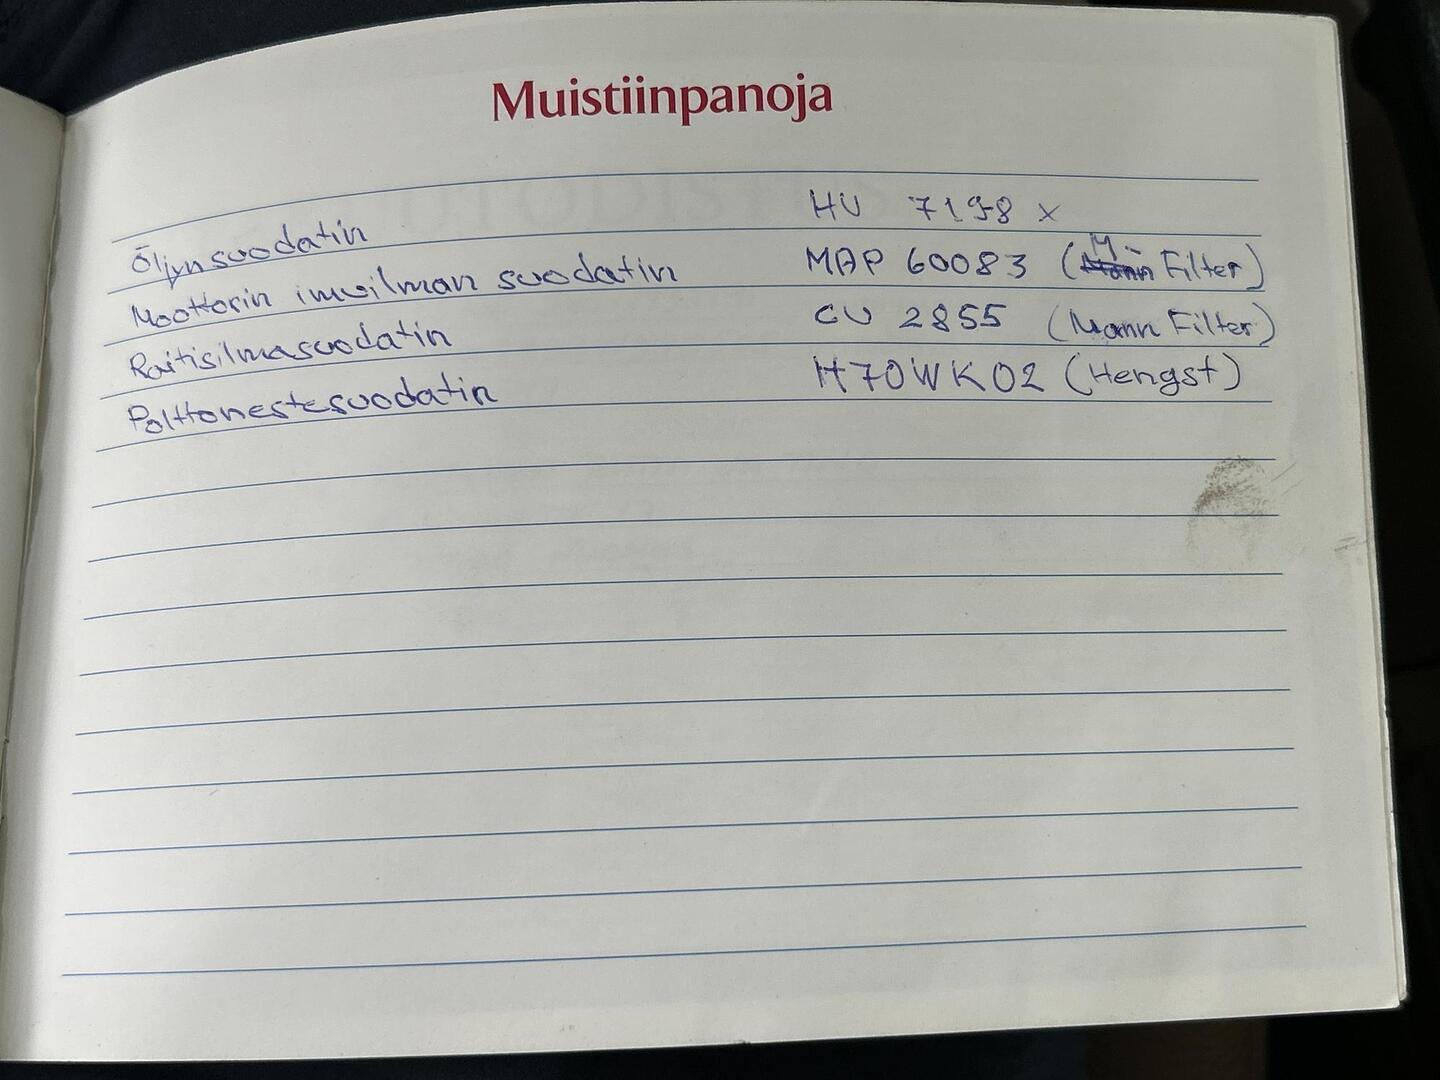 Muistiinpanoja
Öljynsuodatin HU 7198 x
Moottorin imuilman suodatin MAP 60083 (M-Filter)
Raitisilmasuodatin CU 2855 (Mann Filter)
Polttonestesuodatin H70WK02 (Hengst)